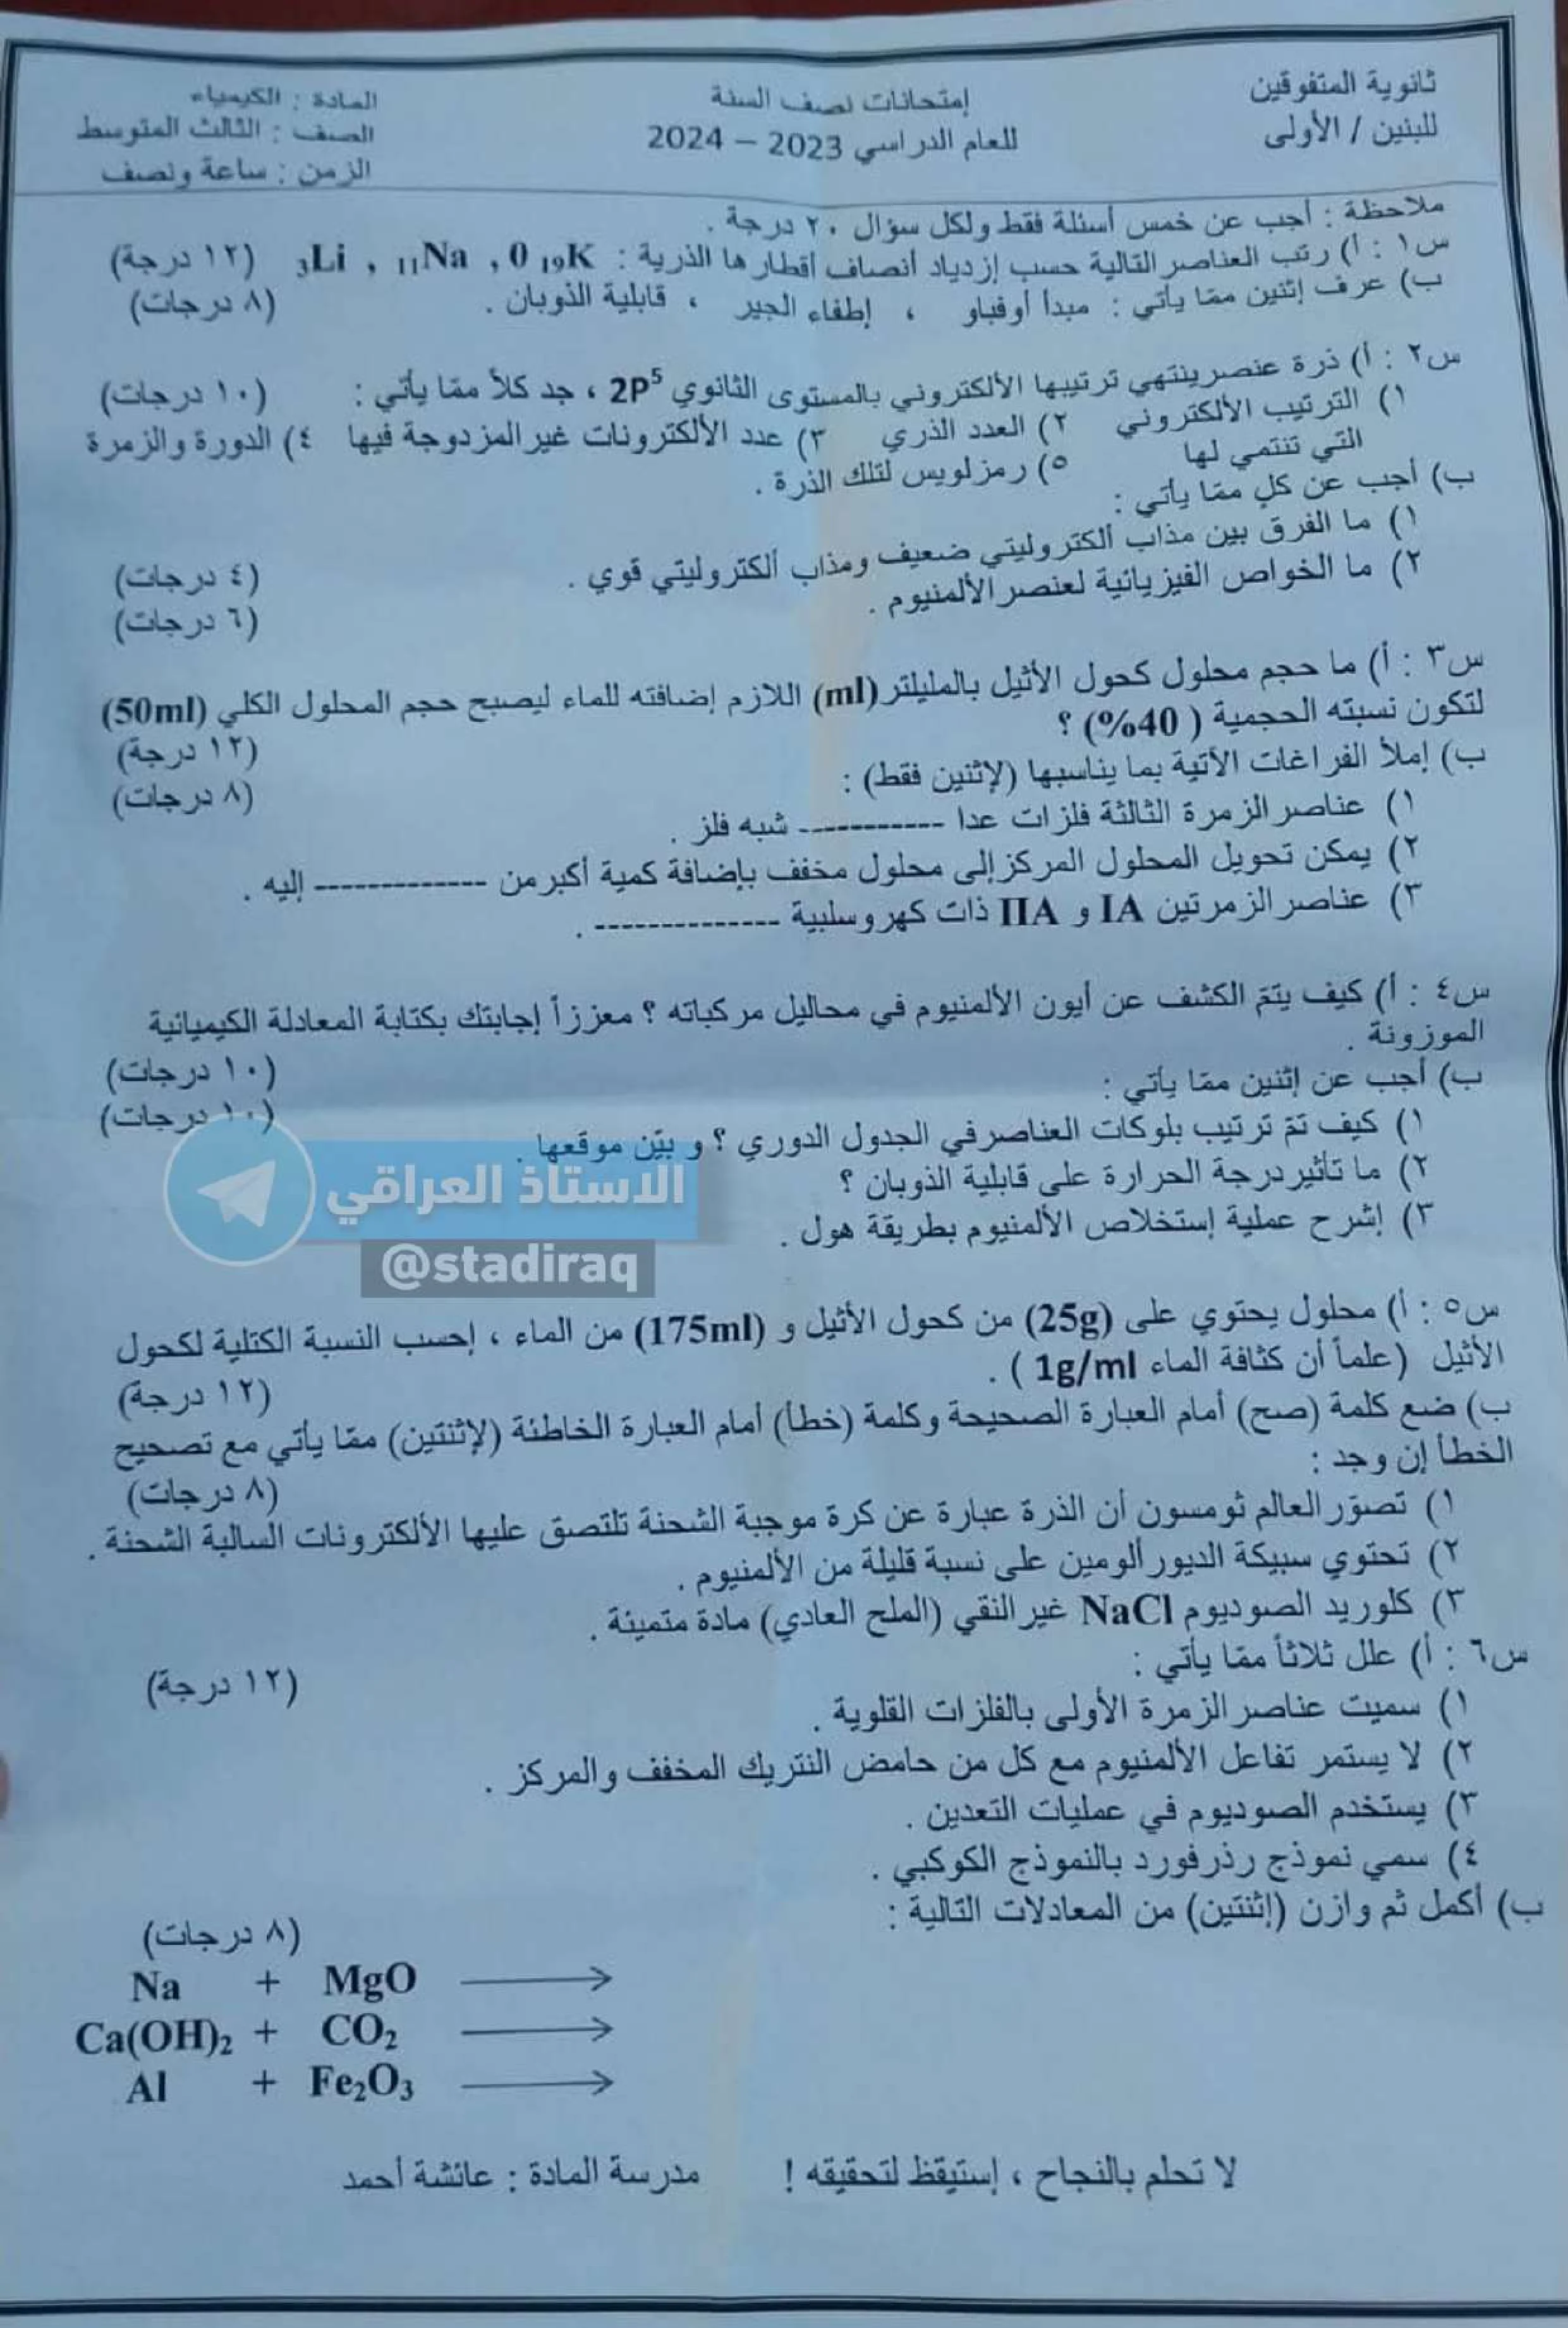 ثانوية المتفوقين
للبنين / الأولى
إمتحانات نصف السنة
للعام الدراسي 2023 – 2024
المادة : الكيمياء
الصف : الثالث المتوسط
الزمن : ساعة ونصف
ملاحظة : أجب عن خمس أسئلة فقط ولكل سؤال ٢٠ درجة .
س١ : أ) رتب العناصر التالية حسب إزدياد أنصاف أقطارها الذرية : ₃Li , ₁₁Na , 0 ₁₉K (١٢ درجة)
ب) عرف إثنين ممّا يأتي : مبدأ أوفباو ، إطفاء الجير ، قابلية الذوبان . (٨ درجات)
س٢ : أ) ذرة عنصرينتهي ترتيبها الألكتروني بالمستوى الثانوي 2P⁵ ، جد كلاً ممّا يأتي : (١٠ درجات)
١) الترتيب الألكتروني ٢) العدد الذري ٣) عدد الألكترونات غيرالمزدوجة فيها ٤) الدورة والزمرة
التي تنتمي لها ٥) رمزلويس لتلك الذرة .
ب) أجب عن كلٍ ممّا يأتي :
١) ما الفرق بين مذاب ألكتروليتي ضعيف ومذاب ألكتروليتي قوي . (٤ درجات)
٢) ما الخواص الفيزيائية لعنصرالألمنيوم . (٦ درجات)
س٣ : أ) ما حجم محلول كحول الأثيل بالمليلتر(ml) اللازم إضافته للماء ليصبح حجم المحلول الكلي (50ml)
لتكون نسبته الحجمية ( 40%) ؟ (١٢ درجة)
ب) إملأ الفراغات الأتية بما يناسبها (لإثنين فقط) : (٨ درجات)
١) عناصرالزمرة الثالثة فلزات عدا ----------- شبه فلز .
٢) يمكن تحويل المحلول المركزإلى محلول مخفف بإضافة كمية أكبرمن ------------- إليه .
٣) عناصرالزمرتين IA و IIA ذات كهروسلبية -------------- .
س٤ : أ) كيف يتمّ الكشف عن أيون الألمنيوم في محاليل مركباته ؟ معززاً إجابتك بكتابة المعادلة الكيميائية
الموزونة . (١٠ درجات)
ب) أجب عن إثنين ممّا يأتي : (١٠ درجات)
١) كيف تمّ ترتيب بلوكات العناصرفي الجدول الدوري ؟ و بيّن موقعها .
٢) ما تأثيردرجة الحرارة على قابلية الذوبان ؟
٣) إشرح عملية إستخلاص الألمنيوم بطريقة هول .
الاستاذ العراقي
@stadiraq
س٥ : أ) محلول يحتوي على (25g) من كحول الأثيل و (175ml) من الماء ، إحسب النسبة الكتلية لكحول
الأثيل (علماً أن كثافة الماء 1g/ml ) . (١٢ درجة)
ب) ضع كلمة (صح) أمام العبارة الصحيحة وكلمة (خطأ) أمام العبارة الخاطئة (لإثنتين) ممّا يأتي مع تصحيح
الخطأ إن وجد : (٨ درجات)
١) تصوّرالعالم ثومسون أن الذرة عبارة عن كرة موجبة الشحنة تلتصق عليها الألكترونات السالبة الشحنة .
٢) تحتوي سبيكة الديورألومين على نسبة قليلة من الألمنيوم .
٣) كلوريد الصوديوم NaCl غيرالنقي (الملح العادي) مادة متميئة .
س٦ : أ) علل ثلاثاً ممّا يأتي : (١٢ درجة)
١) سميت عناصرالزمرة الأولى بالفلزات القلوية .
٢) لا يستمر تفاعل الألمنيوم مع كل من حامض النتريك المخفف والمركز .
٣) يستخدم الصوديوم في عمليات التعدين .
٤) سمي نموذج رذرفورد بالنموذج الكوكبي .
ب) أكمل ثم وازن (إثنتين) من المعادلات التالية : (٨ درجات)
Na + MgO ⟶
Ca(OH)₂ + CO₂ ⟶
Al + Fe₂O₃ ⟶
لا تحلم بالنجاح ، إستيقظ لتحقيقه ! مدرسة المادة : عائشة أحمد